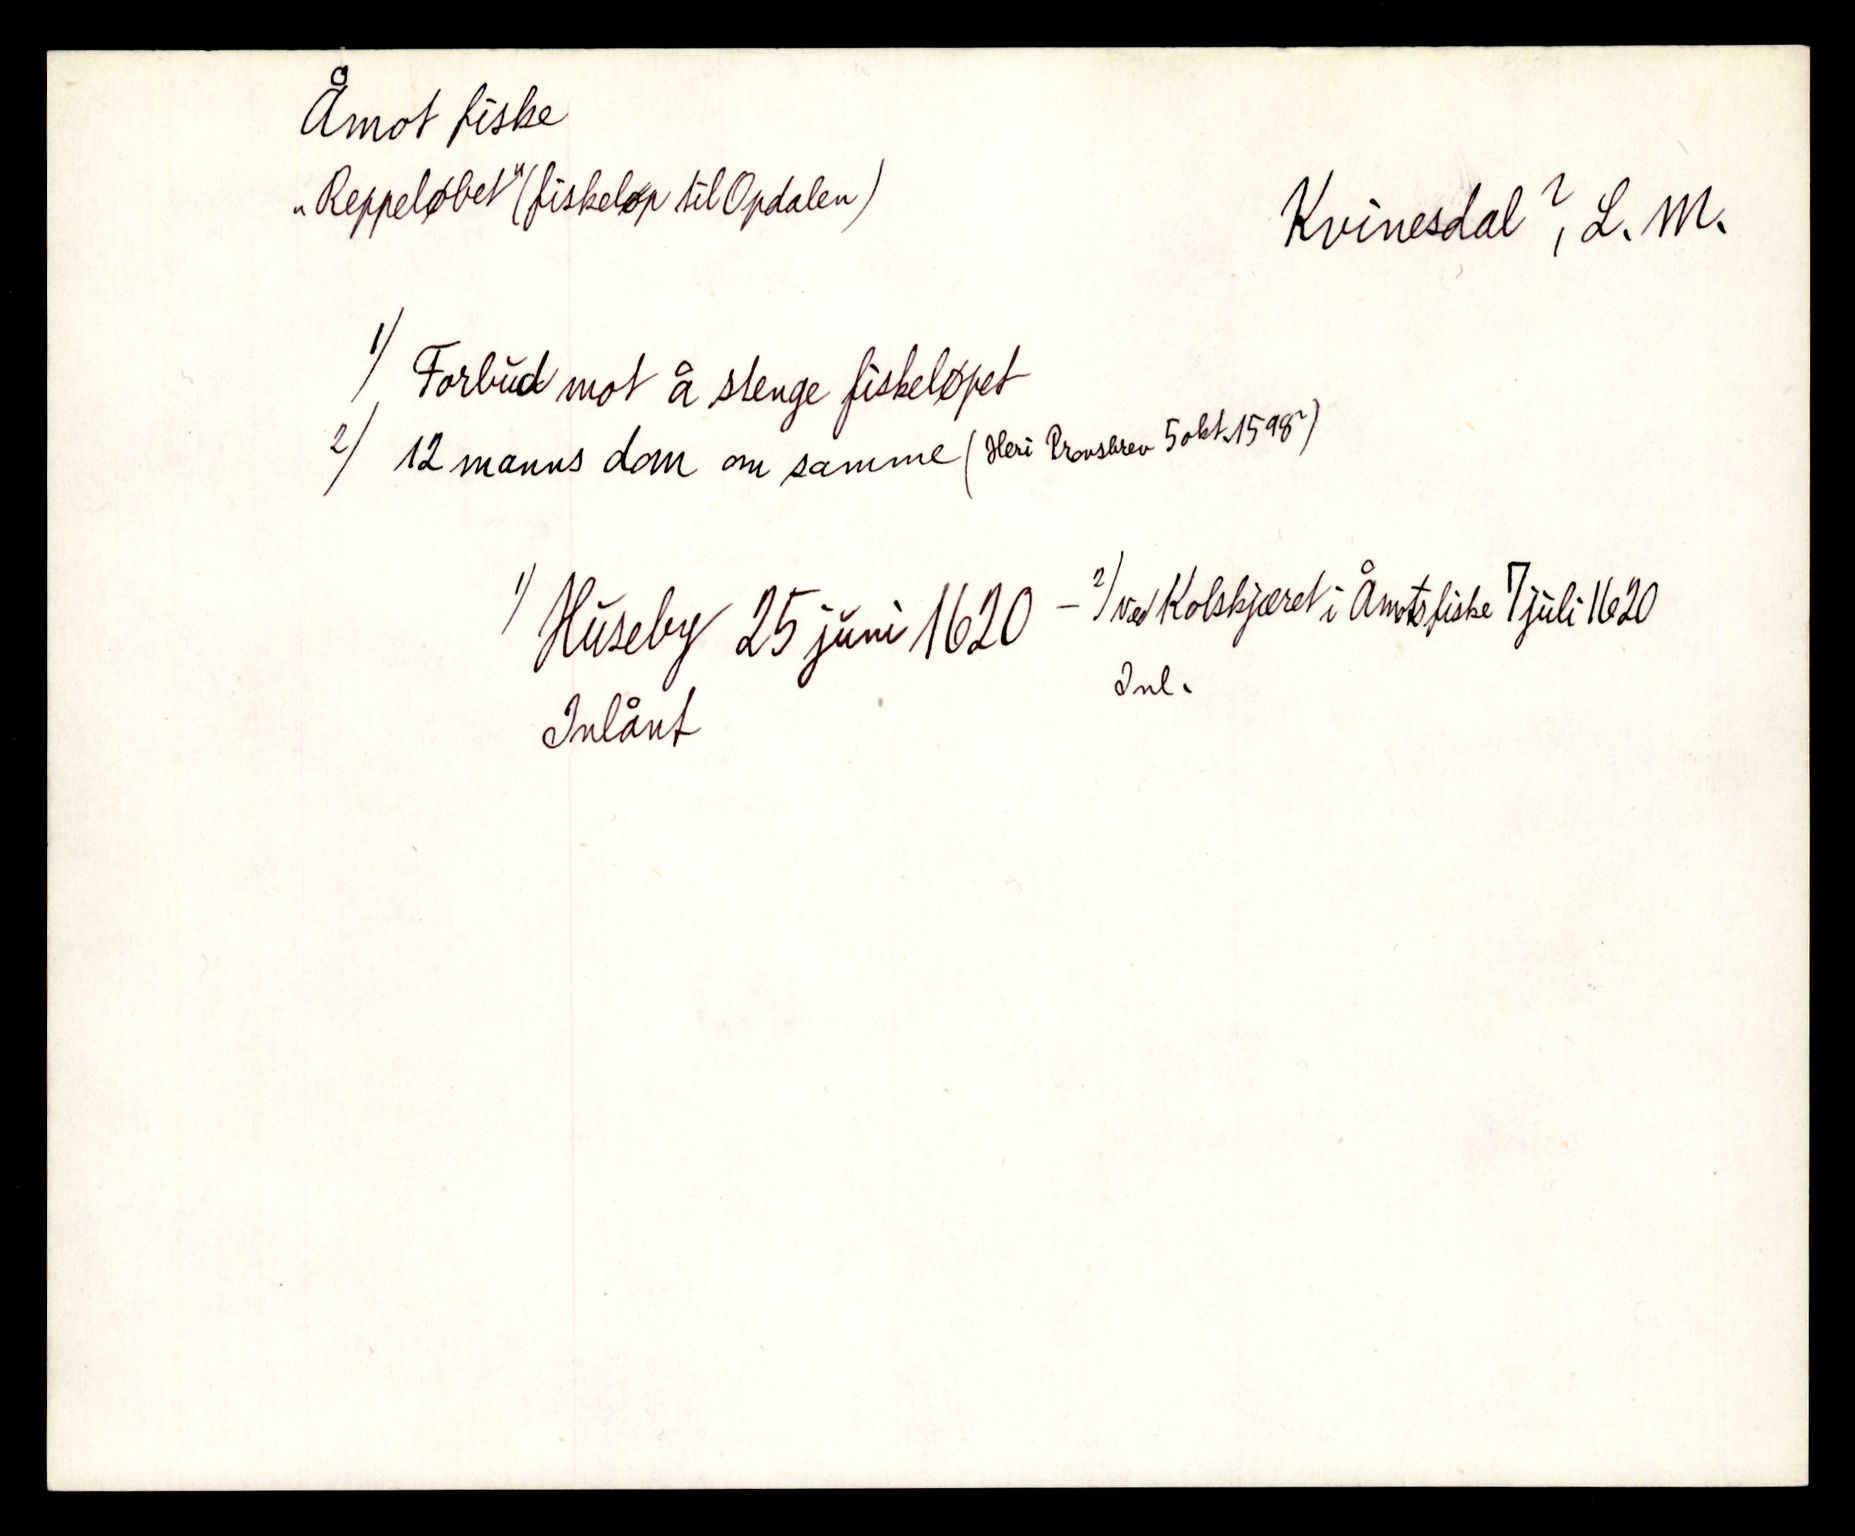 Åmot fiske
„Reppeløbet" (fiskeløp til Opdalen)
Kvinesdal?, L. M.
1/ Forbud mot å stenge fiskeløpet
2/ 12 manns dom om samme (Heri Provsbrev 5 okt. 1598?)
1/ Huseby 25 juni 1620 – 2/ ved Kolskjæret i Åmotsfiske 7 juli 1620
Inl.
Inlånt